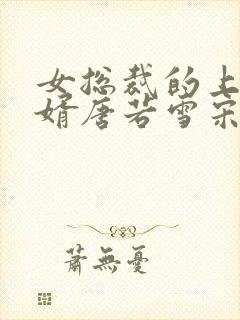 女总裁的上
婿唐若雪宋
萧無憂